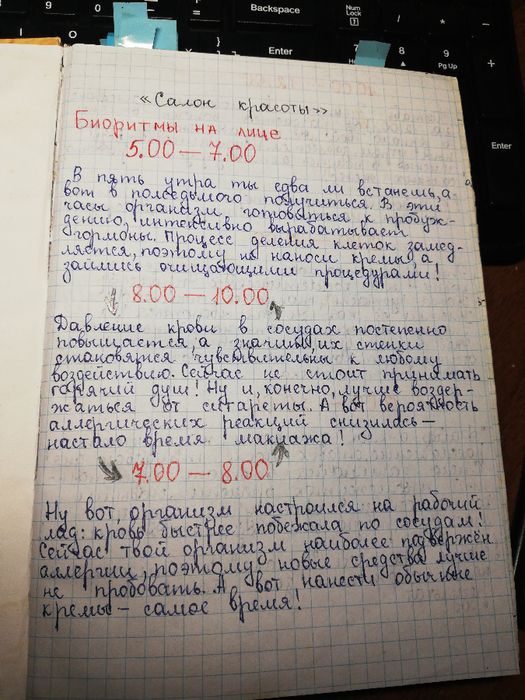 Backspace
Num
Lock
1
/
*
-
Enter
7
8
9
Pg Up
+
Enter
«Салон красоты»
Биоритмы на лице
5.00 — 7.00
В пять утра ты едва ли встанешь, а
вот в полседьмого получиться. В эти
часы организм готовиться к пробуж-
дению, интенсивно вырабатывает
гормоны. Процесс деления клеток замед-
ляется, поэтому не наноси кремы, а
займись очищающими процедурами!
8.00 — 10.00
Давление крови в сосудах постепенно
повышается, а значит их стенки
становятся чувствительны к любому
воздействию. Сейчас не стоит принимать
горячий душ! Ну и, конечно, лучше воздер-
жаться от сигареты. А вот вероятность
аллергических реакций снизилась —
настало время макияжа!
7.00 — 8.00
Ну вот, организм настроился на рабочий
лад: кровь быстрее побежала по сосудам!
Сейчас твой организм наиболее подвержен
аллергии, поэтому новые средства лучше
не пробовать. А вот нанести обычные
кремы — самое время!